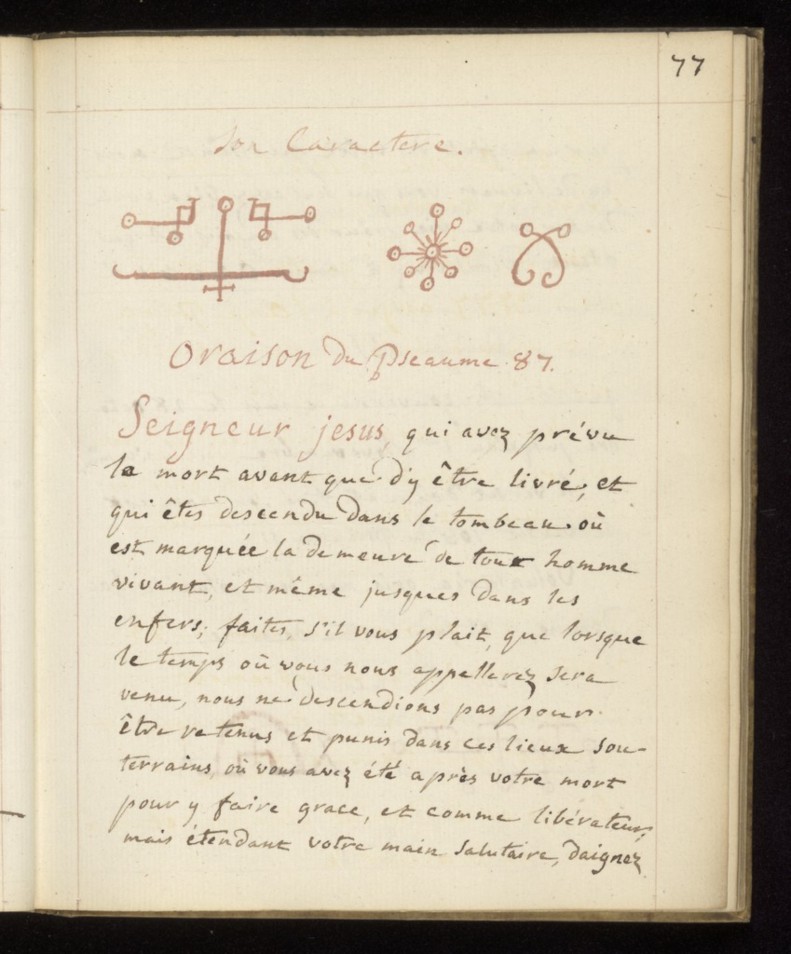 77
Son Caractere.
Oraison du Pseaume 87.
Seigneur jesus, qui avez prévu
la mort avant que d'y être livré, et
qui êtes descendu dans le tombeau où
est marquée la demeure de tout homme
vivant, et même jusques dans les
enfers; faites, s'il vous plait, que lorsque
le temps où vous nous appellerez sera
venu, nous ne descendions pas pour
être retenus et punis dans ces lieux sou-
terrains, où vous avez été après votre mort
pour y faire grace, et comme libérateur;
mais étendant votre main salutaire, daignez